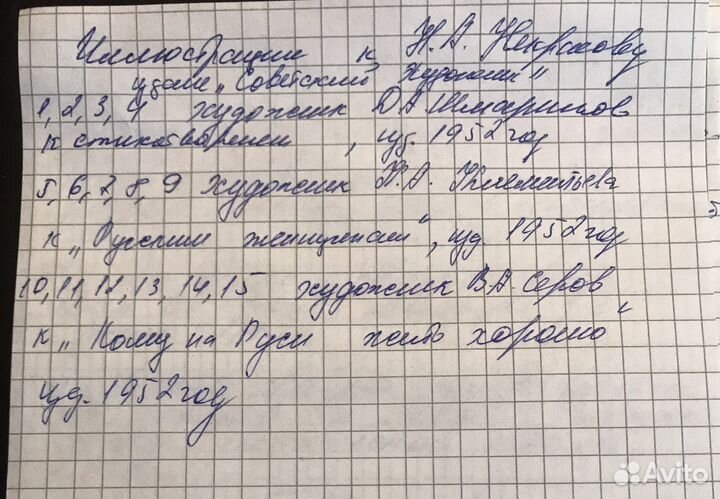 Иллюстрации к Н.А. Некрасову
издат „Советский художник"
1, 2, 3, 4 художник Д.А. Шмаринов
к стихотворениям, изд. 1952 год
5, 6, 7, 8, 9 художник К.А. Клементьева
к „Русским женщинам", изд 1952 год
10, 11, 12, 13, 14, 15 художник В.А. Серов
к „Кому на Руси жить хорошо"
изд. 1952 год
Avito